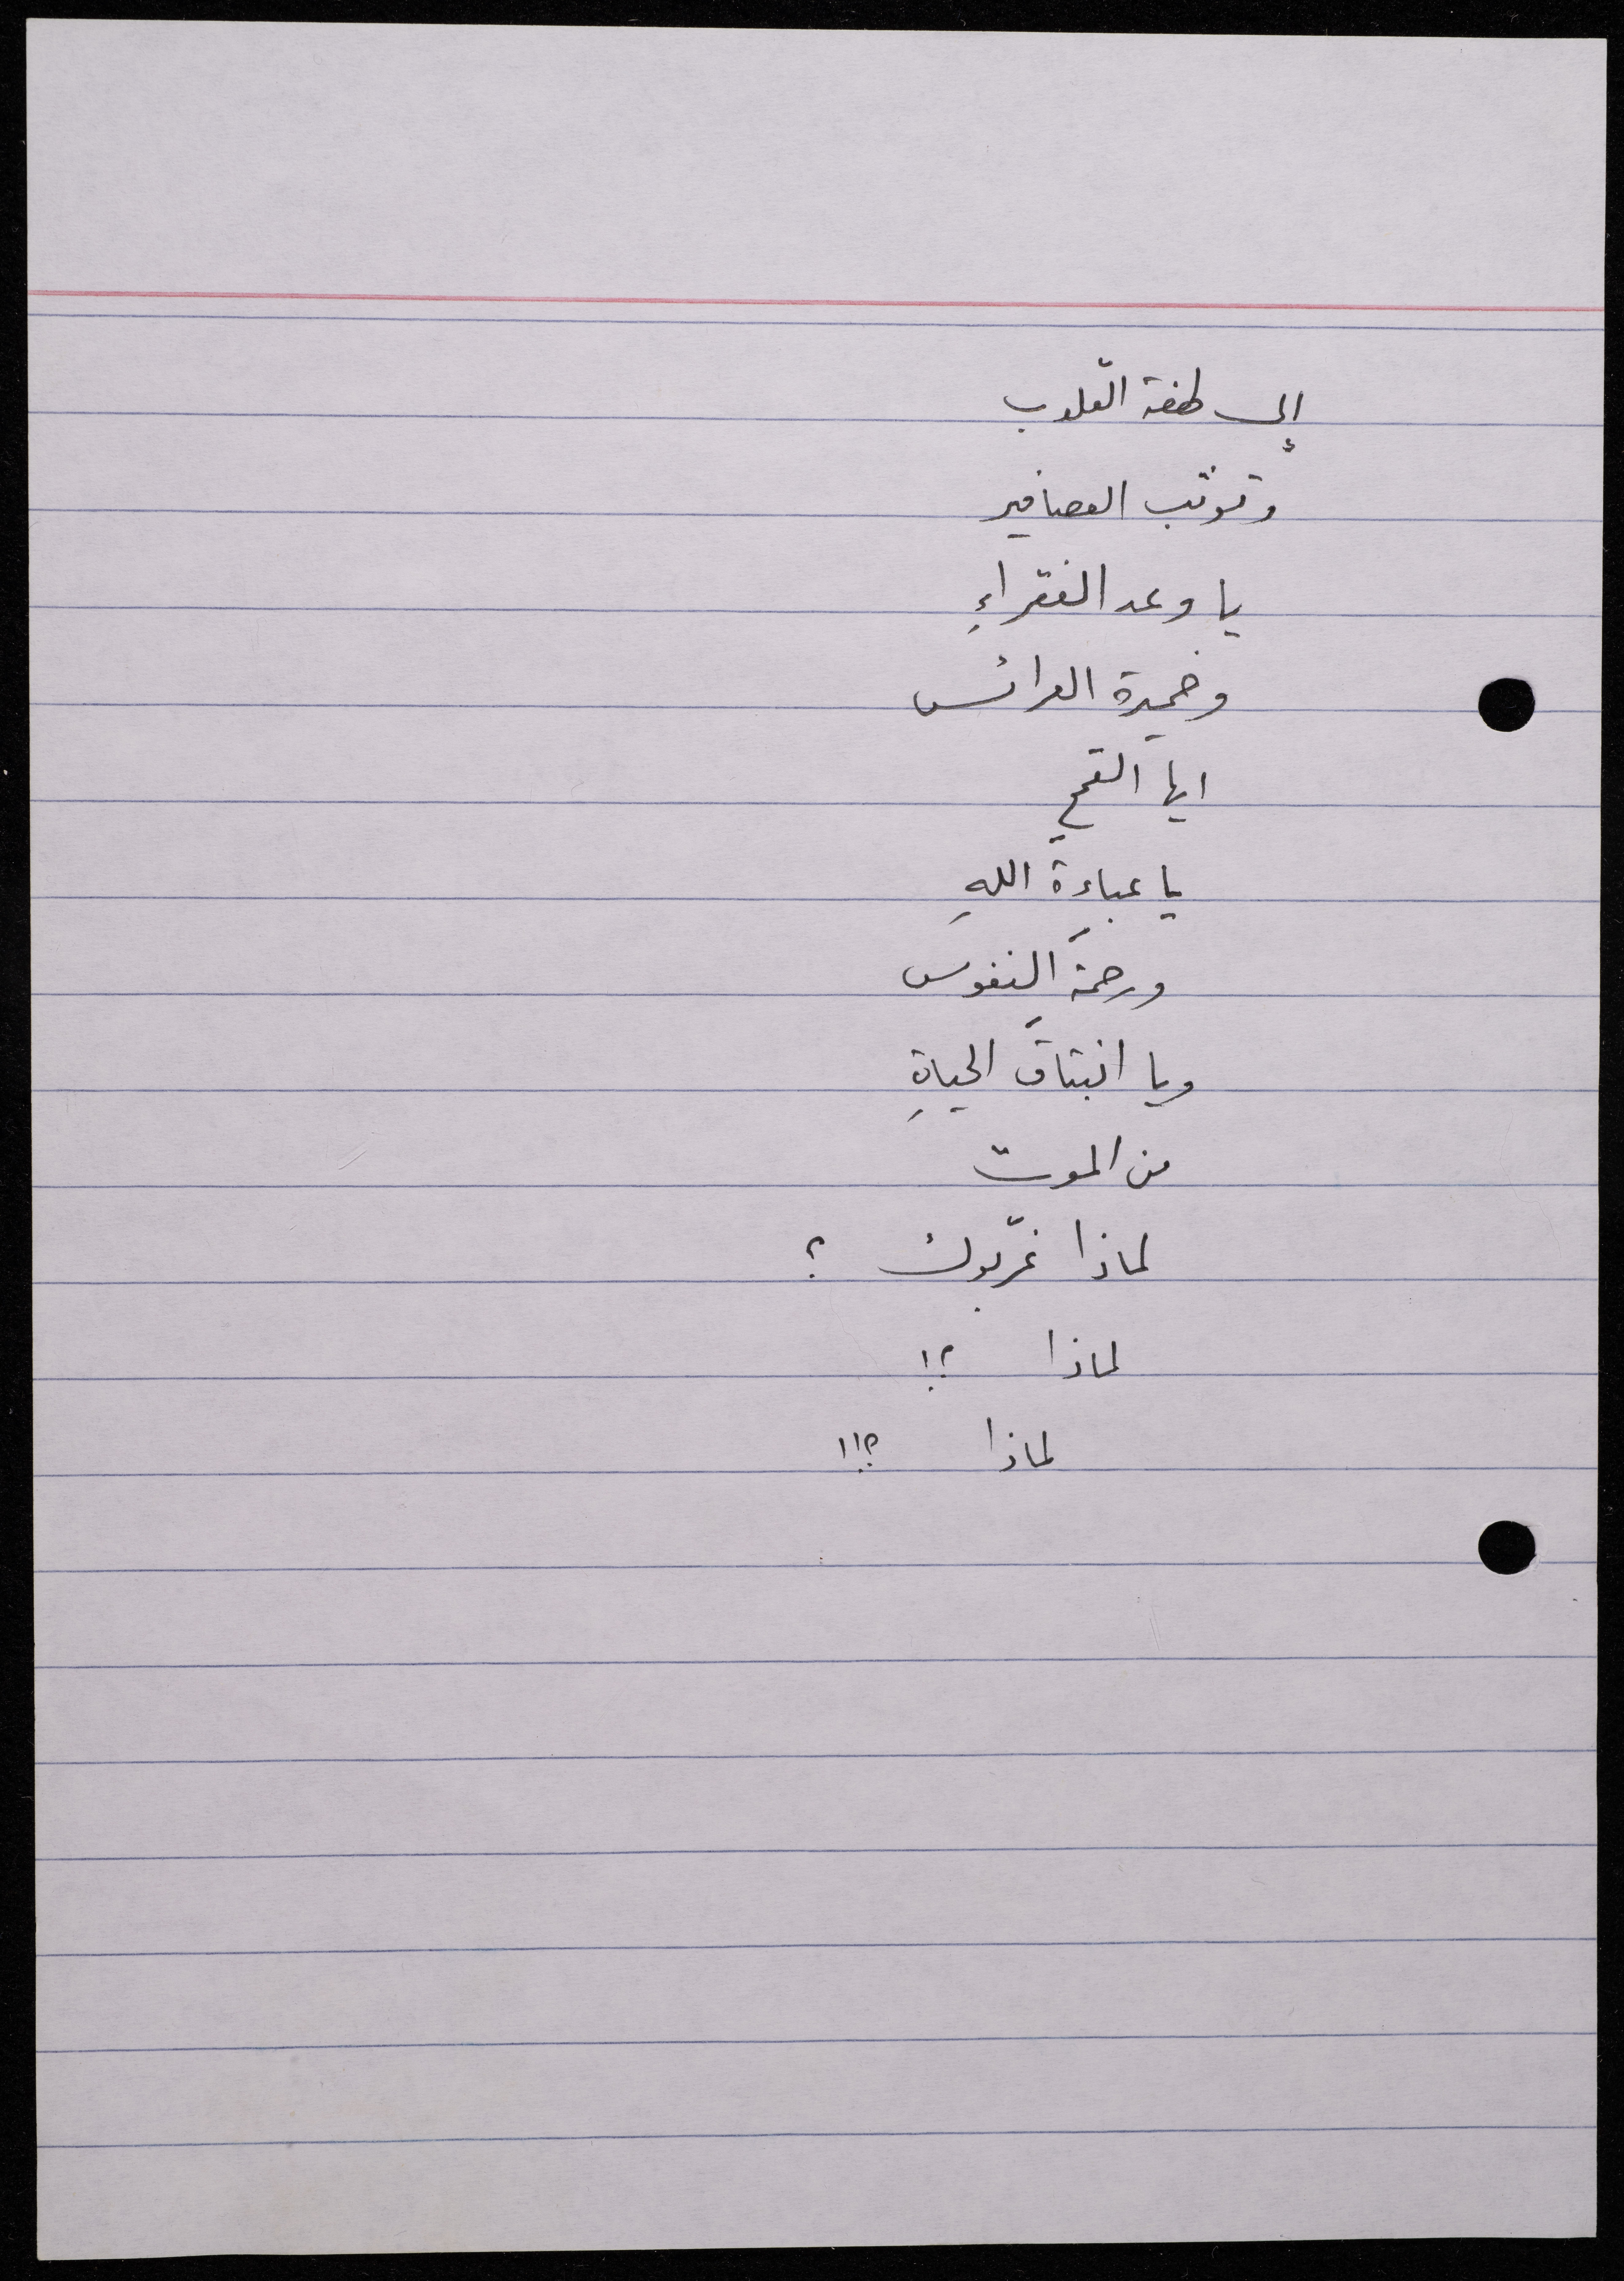 إلى لهفة القلوب
وتوثب العصافير
يا وعد الفقراءِ
وخميرة العرائس
ايها القمح
يا عباءة اللهِ
ورحمةَ النفوس
ويا انبثاقَ الحياةِ
من الموت
لماذا غرّبوك ؟
لماذا ؟!
لماذا ؟!!